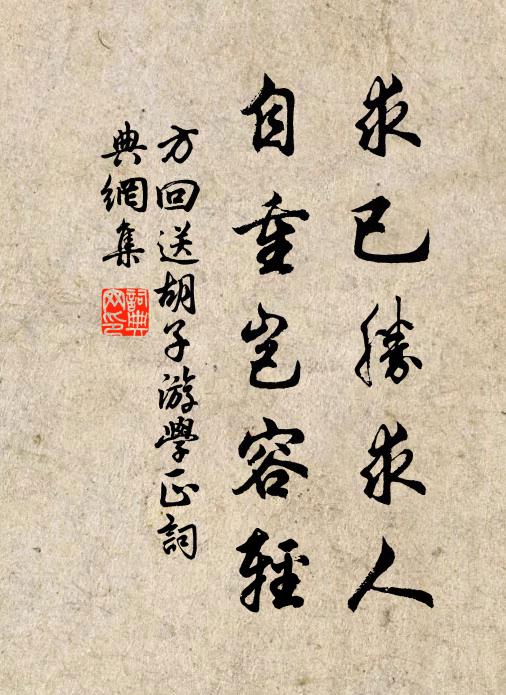 求已勝求人
自重豈容輕
方回送胡子游學正詞
典網集
詞典
网印